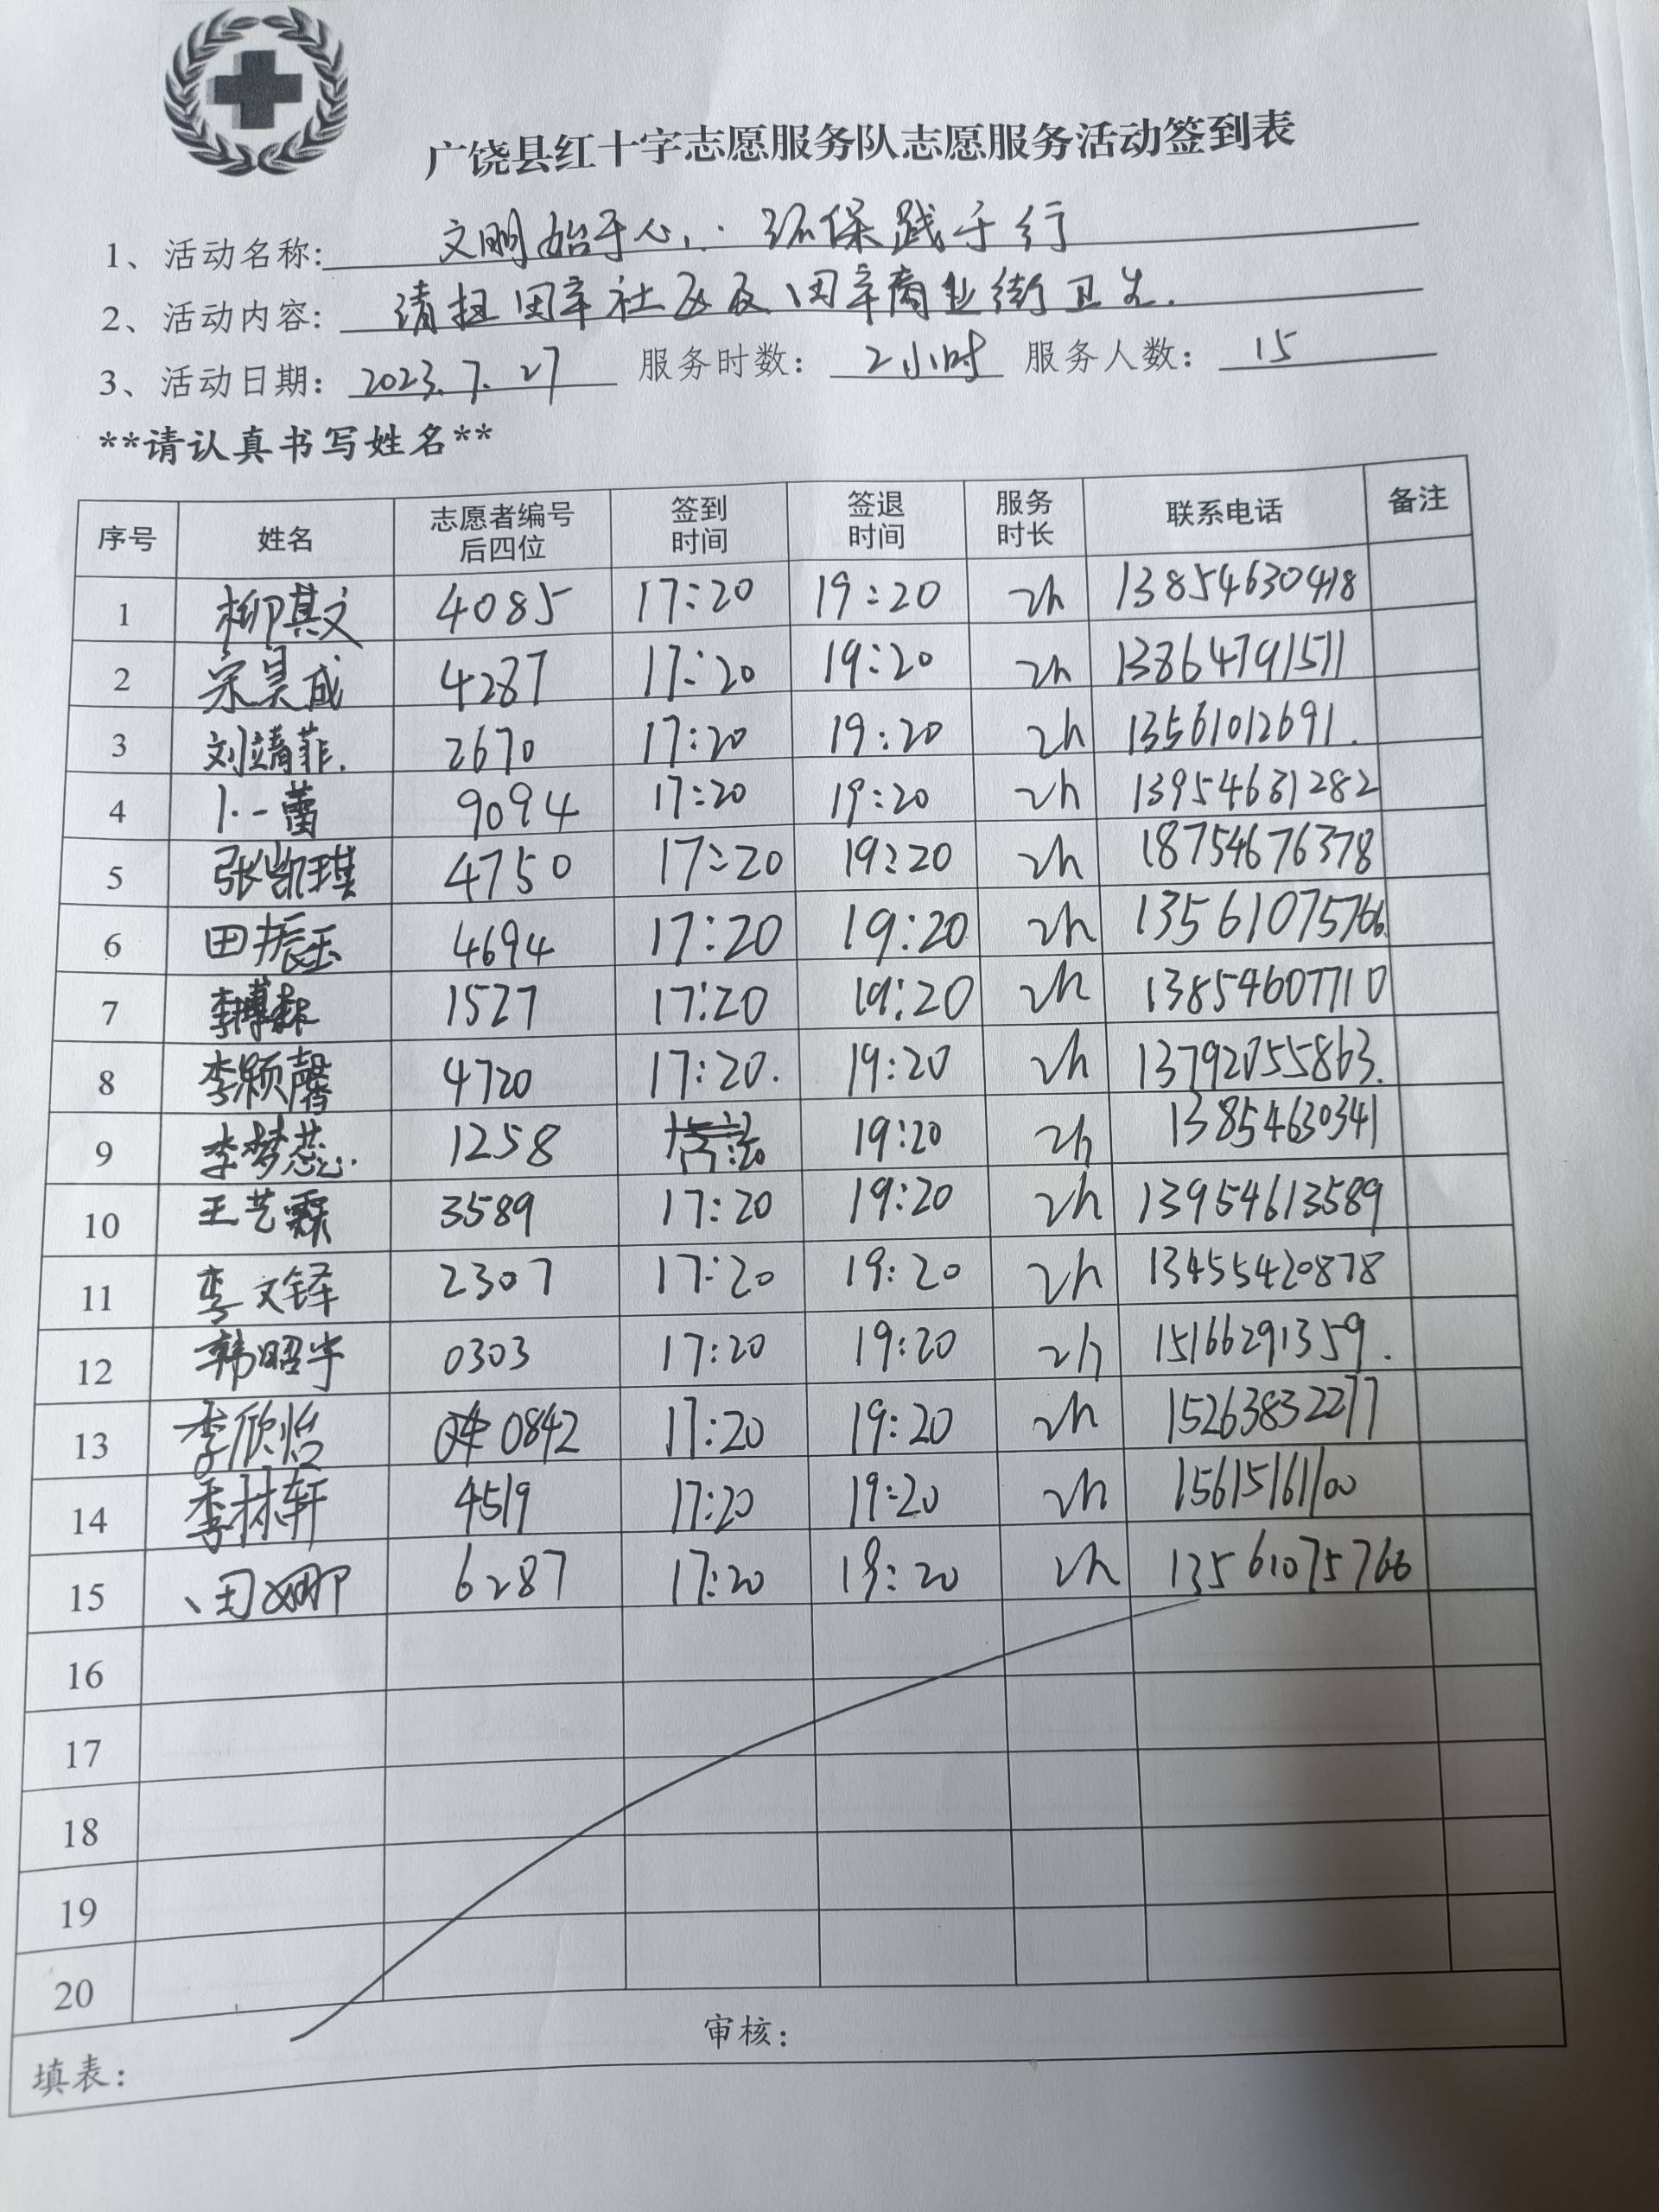 广饶县红十字志愿服务队志愿服务活动签到表
1、活动名称: 文明始于心, 环保践于行
2、活动内容: 清扫田辛社区及田辛商业街卫生.
3、活动日期: 2023.7.27 服务时数: 2小时 服务人数: 15
**请认真书写姓名**
序号 姓名 志愿者编号后四位 签到时间 签退时间 服务时长 联系电话 备注
1 柳其文 4085 17:20 19:20 2h 13854630418
2 宋昊成 4287 17:20 19:20 2h 13864791511
3 刘靖菲. 2670 17:20 19:20 2h 13561012691.
4 卜一蕾 9094 17:20 19:20 2h 13954631282
5 张凯琪 4750 17:20 19:20 2h 18754676378
6 田振玉 4694 17:20 19:20 2h 13561075766
7 李博 1527 17:20 19:20 2h 13854607710
8 李颖馨 4720 17:20. 19:20 2h 13792055863.
9 李梦蕊. 1258 19:20 2h 13854630341
10 王艺霖 3589 17:20 19:20 2h 13954613589
11 李文铎 2307 17:20 19:20 2h 13455420878
12 韩昭宇 0303 17:20 19:20 2h 15166291359.
13 李欣怡 0842 17:20 19:20 2h 15263832277
14 李林轩 4519 17:20 19:20 2h 15615161100
15 田娜 6287 17:20 19:20 2h 13561075766
16
17
18
19
20
填表: 审核: